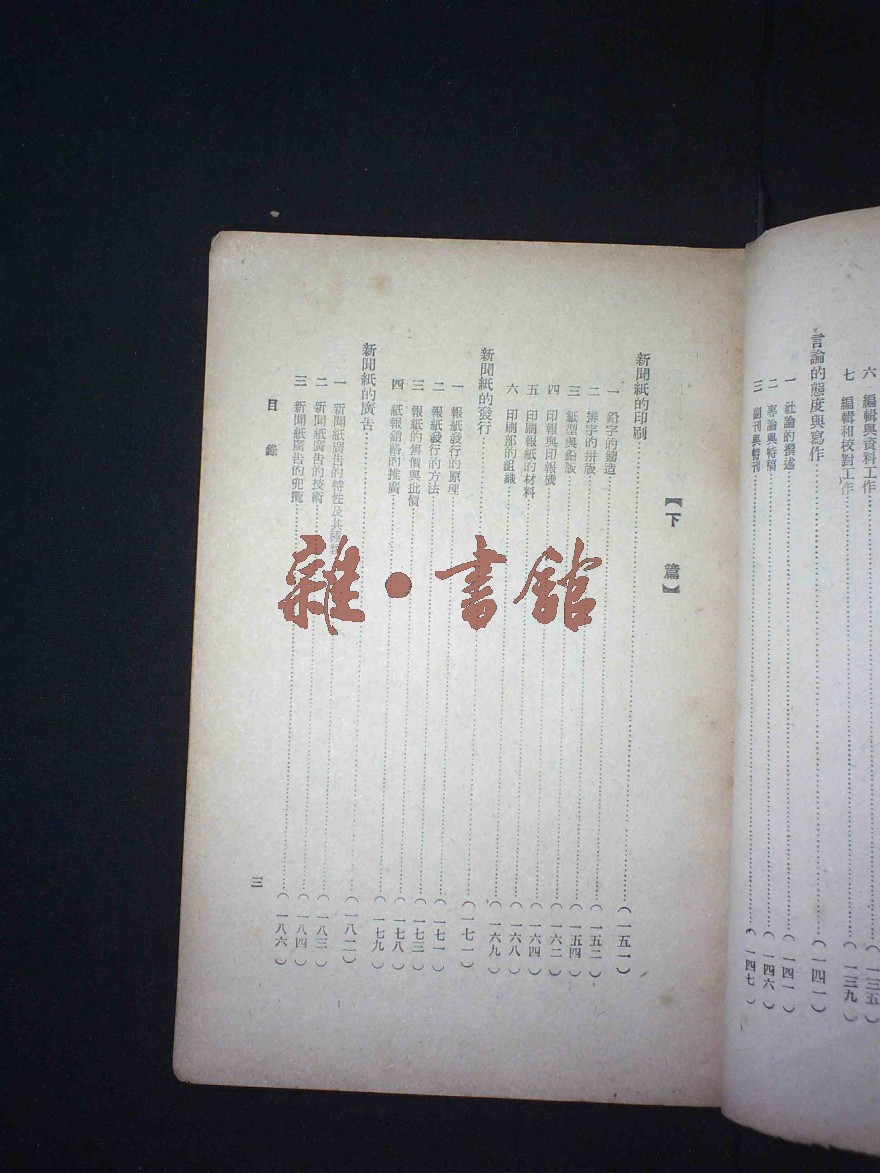 六 編輯與資料工作……（一三五）
七 編輯和校對工作……（一三九）
言論的態度與寫作……（一四一）
一 社論的撰述……（一四一）
二 專論與特稿……（一四六）
三 副刊與特刊……（一四七）
【下 篇】
新聞紙的印刷……（一五一）
一 鉛字的鑄造……（一五二）
二 排字的拼版……（一五四）
三 紙型與鉛版……（一六二）
四 印報與印報機……（一六四）
五 印刷報紙的材料……（一六八）
六 印刷部的組織……（一六九）
新聞紙的發行……（一七一）
一 報紙發行的原理……（一七一）
二 報紙發行的方法……（一七三）
三 報紙的售價與批價……（一七八）
四 紙報銷路的推廣……（一七九）
新聞紙的廣告……（一八二）
一 新聞紙廣告的特性及其種類……（一八三）
二 新聞紙廣告的技術……（一八四）
三 新聞紙廣告的兜攬……（一八六）
目 錄
三
雜·書館